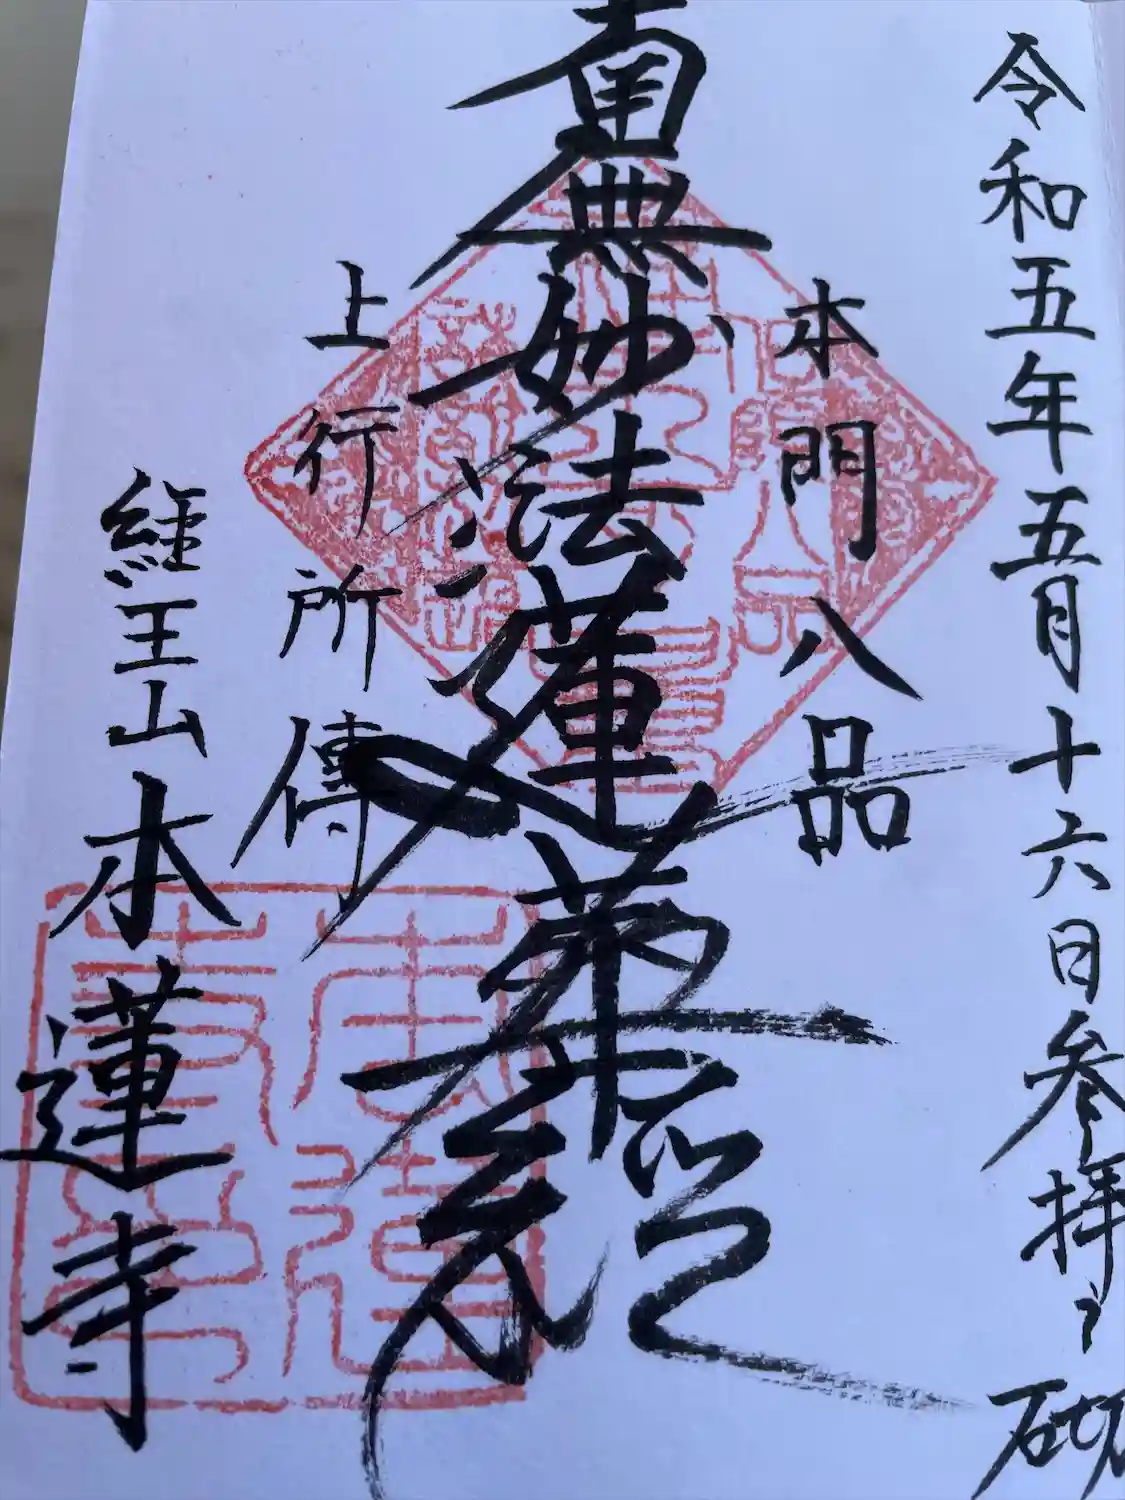 令和五年五月十六日参拝之砌
本門八品
南無妙法蓮華経
上行所傳
経王山
本蓮寺